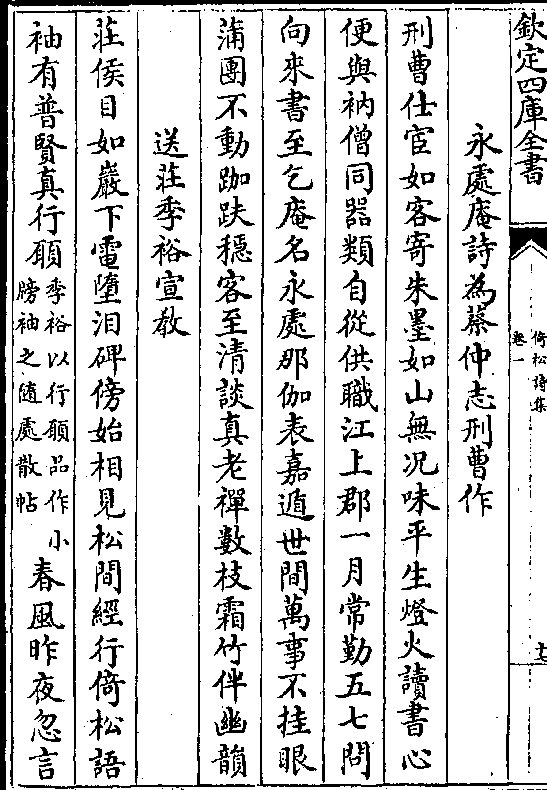 欽定四庫全書
倚松詩集
卷一
永處庵詩為蔡仲志刑曹作
刑曹仕宦如客寄朱墨如山無況味平生燈火讀書心
便與衲僧同器類自從供職江上郡一月常勤五七問
向來書至乞庵名永處那伽表嘉遁世間萬事不挂眼
蒲團不動跏趺穩客至清談真老禪數枝霜竹伴幽韻
送莊季裕宣教
莊侯目如巖下電墮泪碑傍始相見松間經行倚松語
袖有普賢真行願季裕以行願品作小牓袖之随處散帖春風昨夜忽言